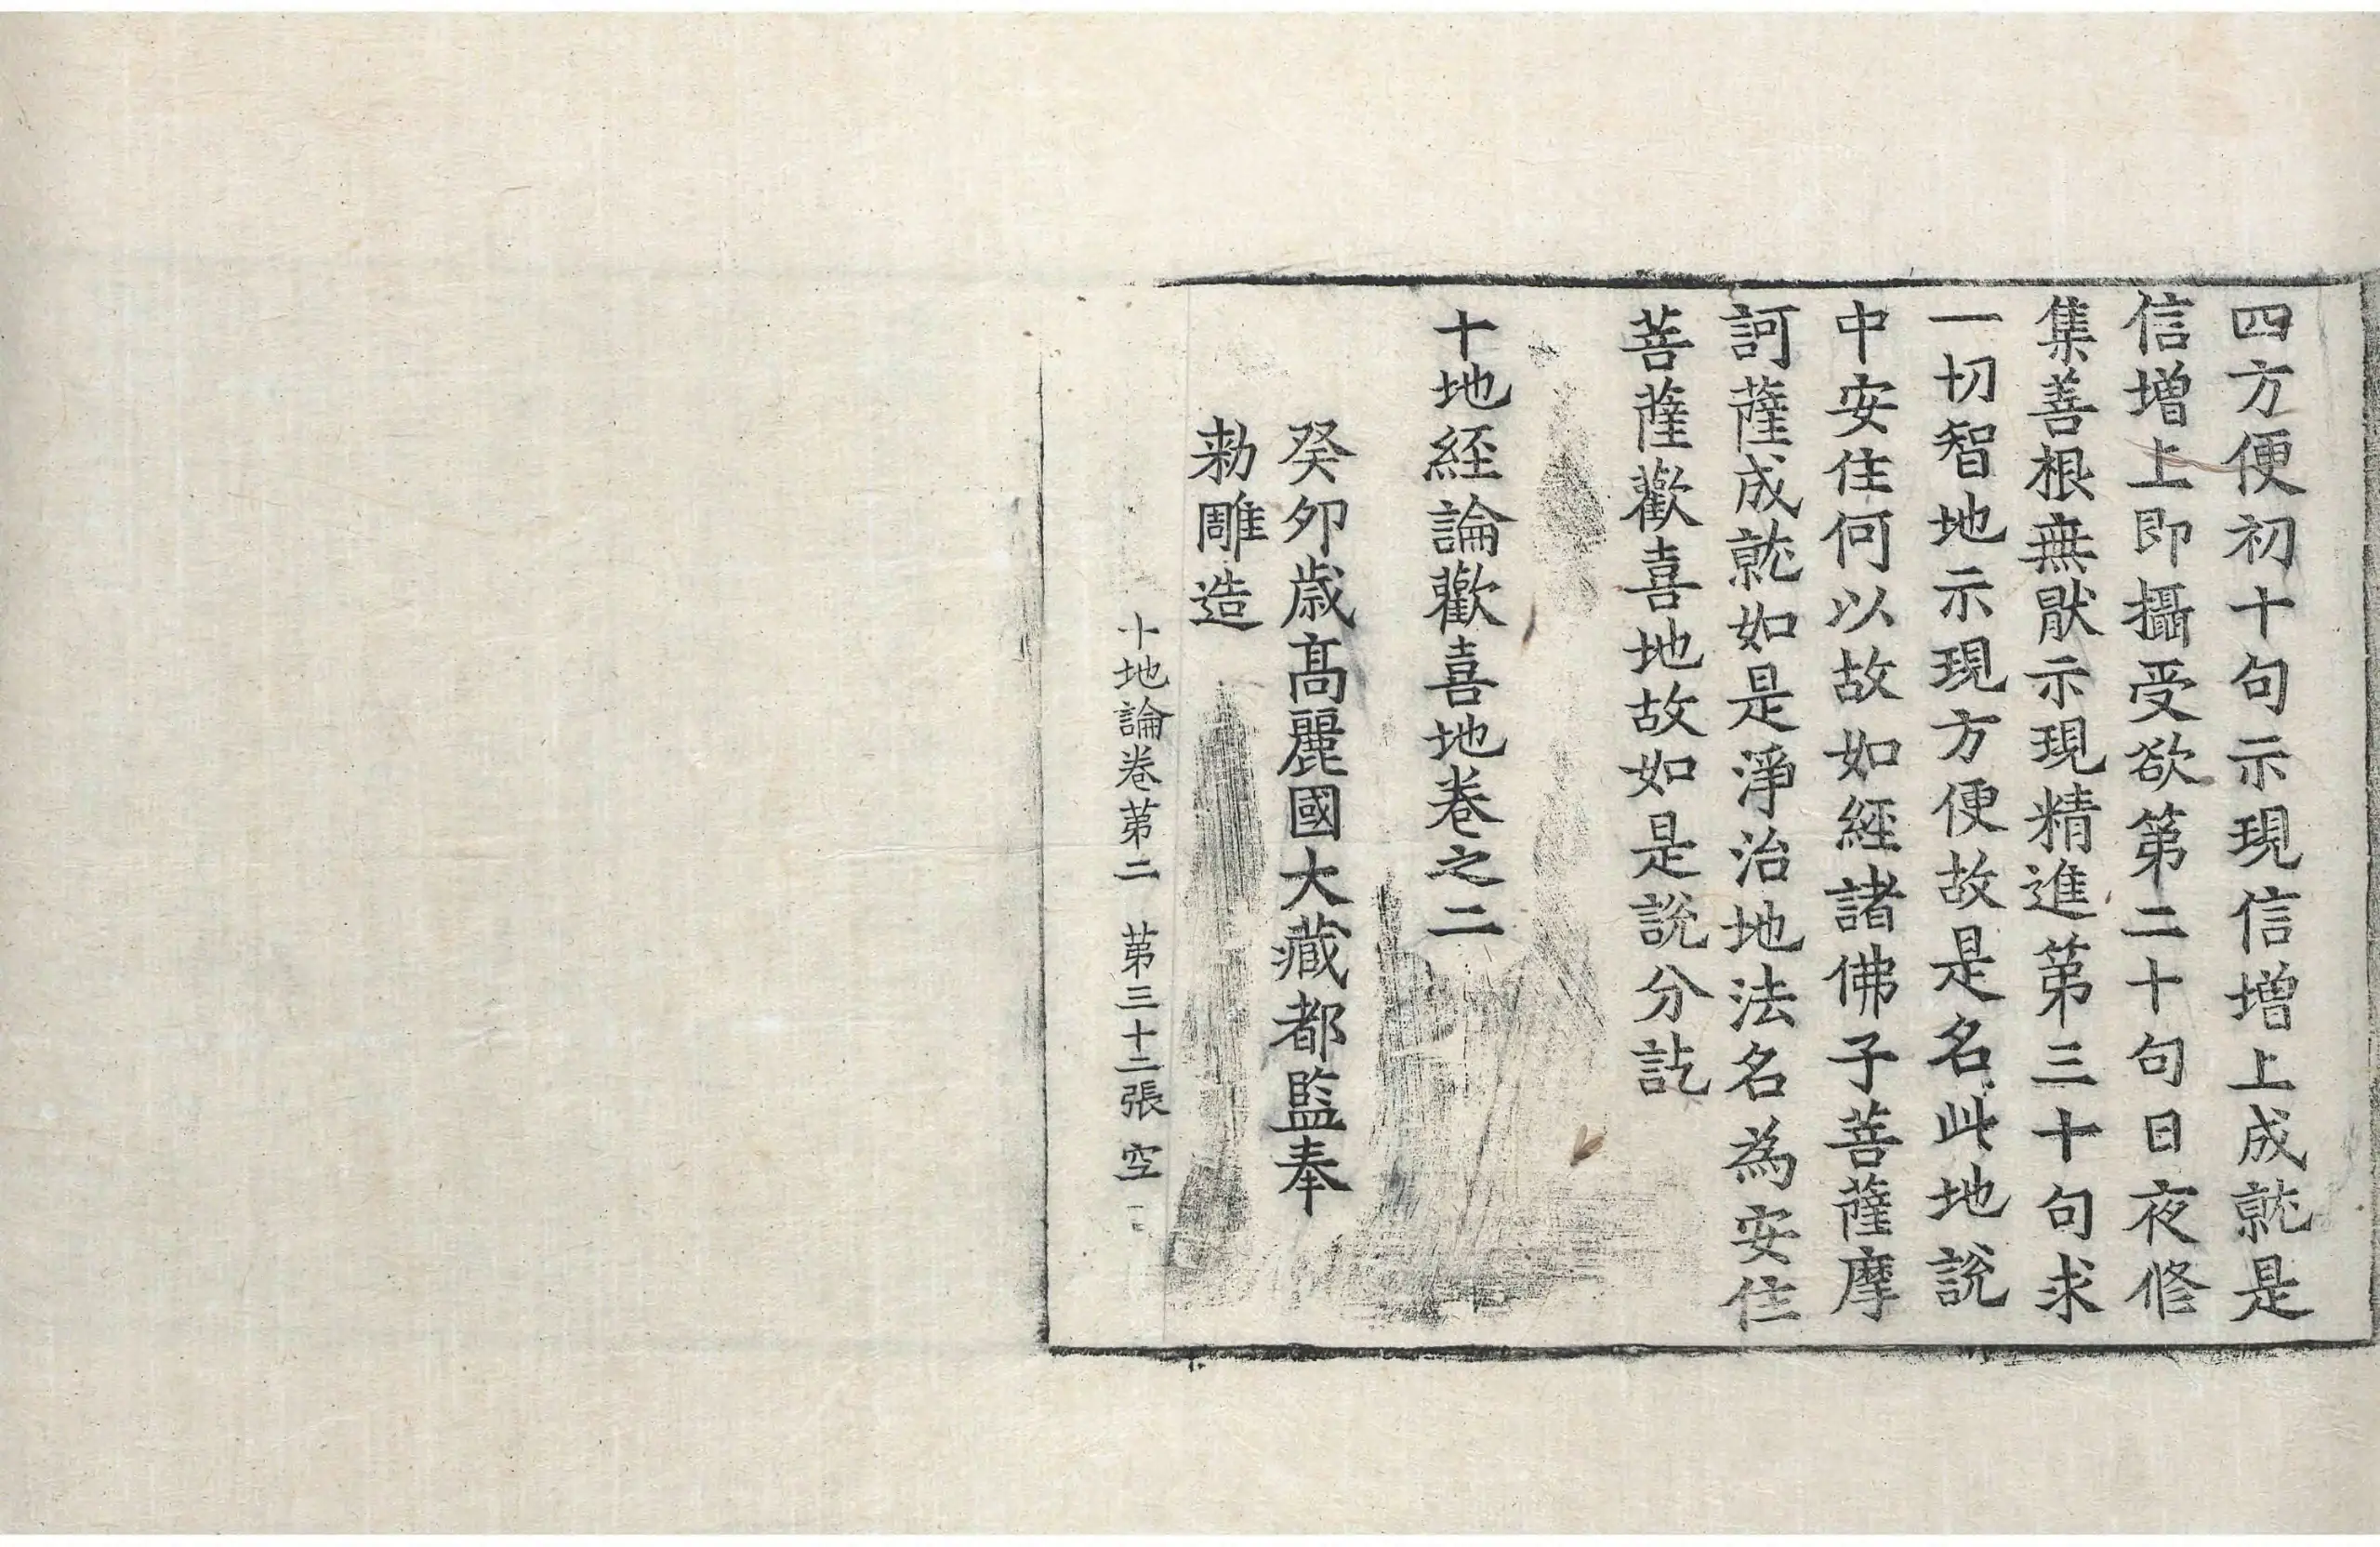 四方便初十句示現信增上成就是
信增上即攝受欲第二十句日夜修
集善根無猒示現精進第三十句求
一切智地示現方便故是名此地說
中安住何以故如經諸佛子菩薩摩
訶薩成就如是淨治地法名為安住
菩薩歡喜地故如是說分訖
十地經論歡喜地卷之二
癸卯歲髙麗國大藏都監奉
勑雕造
十地論卷第二 第三十二張 空